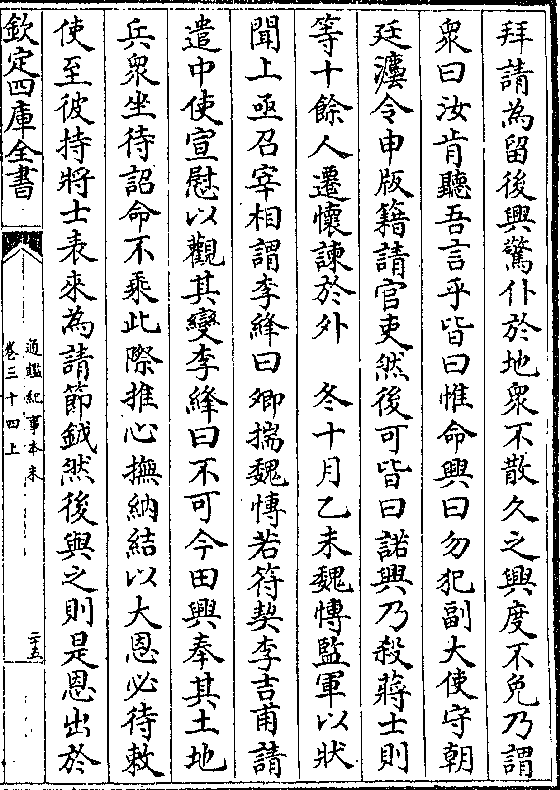 拜請為留後興驚仆於地衆不散久之興度不免乃謂
衆曰汝肯聽吾言乎皆曰惟命興曰勿犯副大使守朝
廷灋令申版籍請官吏然後可皆曰諾興乃殺蔣士則
等十餘人遷懷諫於外　冬十月乙未魏愽監軍以狀
聞上亟召宰相謂李絳曰卿揣魏愽若符契李吉甫請
遣中使宣慰以觀其變李絳曰不可今田興奉其土地
兵衆坐待詔命不乘此際推心撫納結以大恩必待敕
使至彼持將士表來為請節鉞然後與之則是恩出於
欽定四庫全書
通鑑紀事本末
卷三十四上
二十五